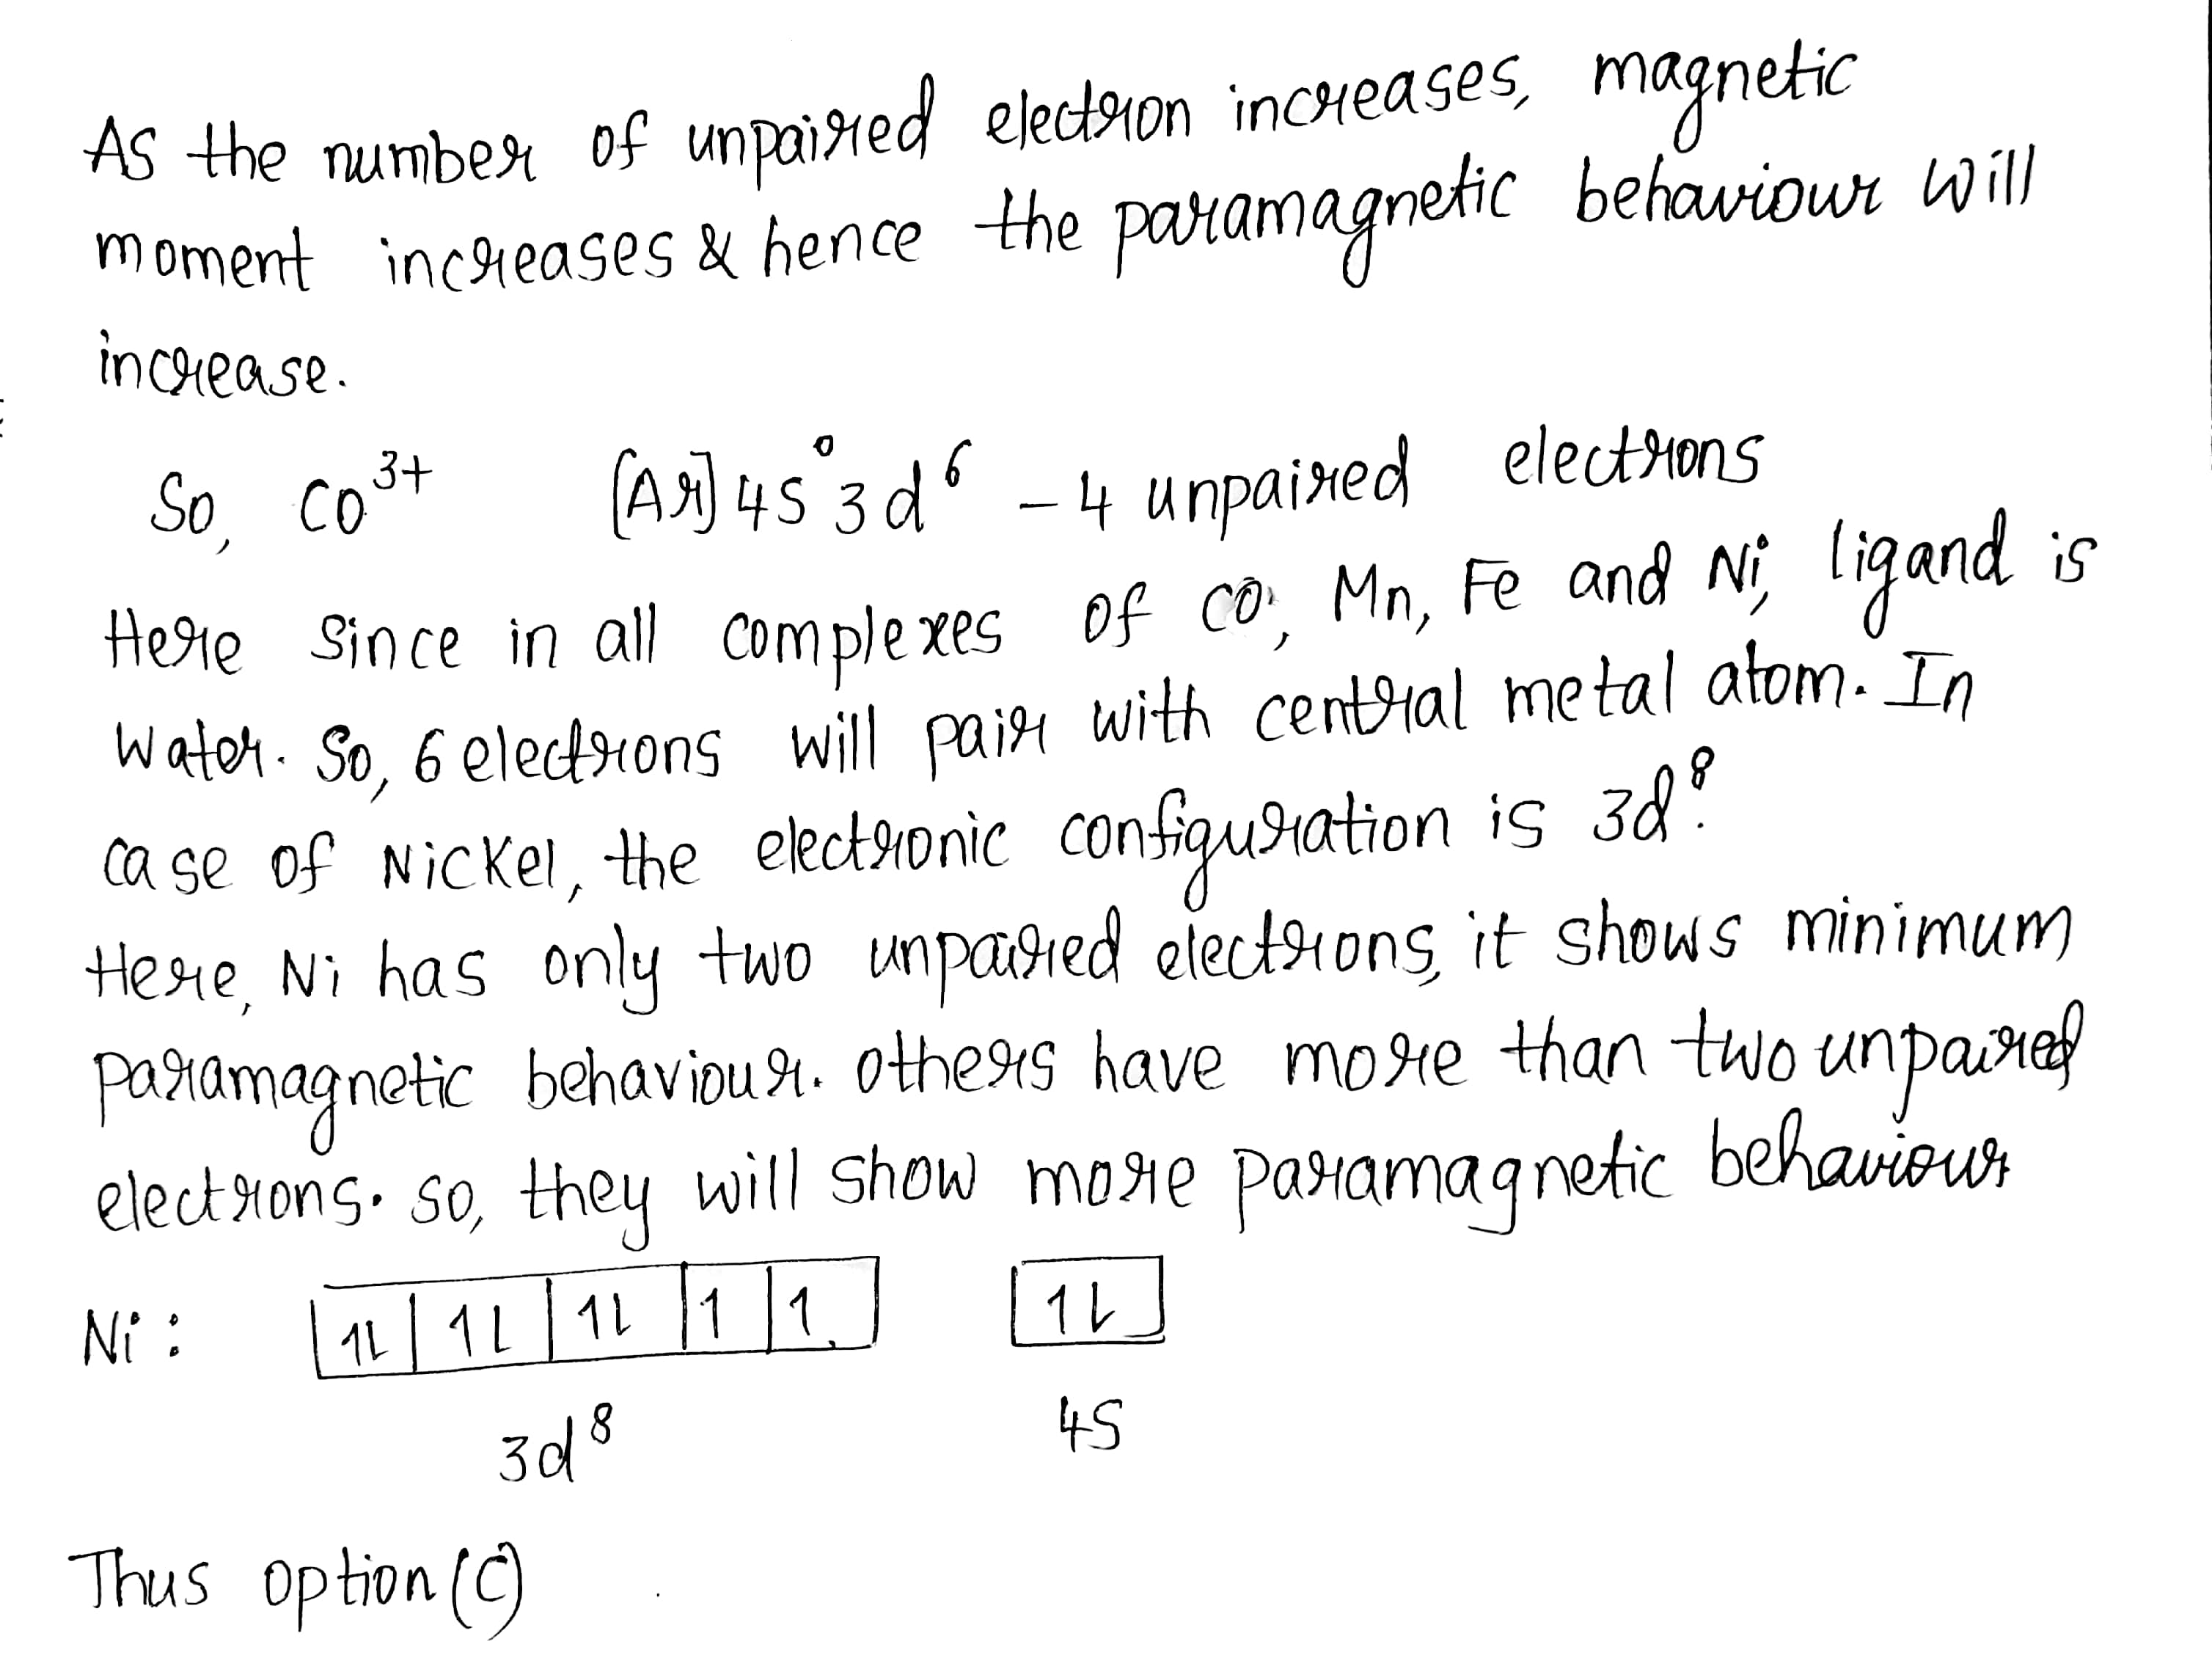 As the number of unpaired electron increases, magnetic
moment increases & hence the paramagnetic behaviour will
increase.
So, CO³⁺ [Ar] 4s⁰ 3d⁶ - 4 unpaired electrons
Here since in all complexes of CO, Mn, Fe and Ni, ligand is
water. So, 6 electrons will pair with central metal atom. In
case of Nickel, the electronic configuration is 3d⁸.
Here, Ni has only two unpaired electrons, it shows minimum
paramagnetic behaviour. others have more than two unpaired
electrons. so, they will show more paramagnetic behaviour
Ni : 1L 1L 1L 1 1 1L
3d⁸ 4S
Thus option (C)